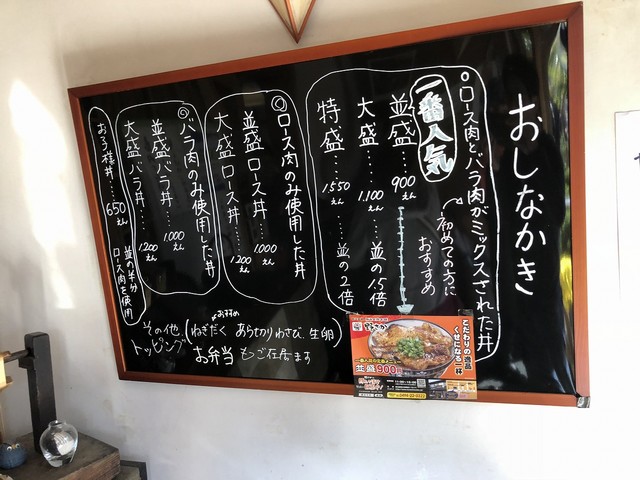 おしなかき
○ロース肉とバラ肉がミックスされた丼
初めての方に
おすすめ
一番人気
並盛……900えん
大盛……1.100えん……並の1.5倍
特盛……1.550えん……並の2倍
◎ロース肉のみ使用した丼
並盛ロース丼……1.000えん
大盛ロース丼……1.200えん
◎バラ肉のみ使用した丼
並盛バラ丼……1.000えん
大盛バラ丼……1.200えん
お子様丼……650えん
並の半分
ロース肉を使用
その他
トッピング
おすすめ
(ねぎだく あら切りわさび、生卵)
お弁当もつご座居ます
こだわりの逸品
くせになる一杯
野さか
並盛900円